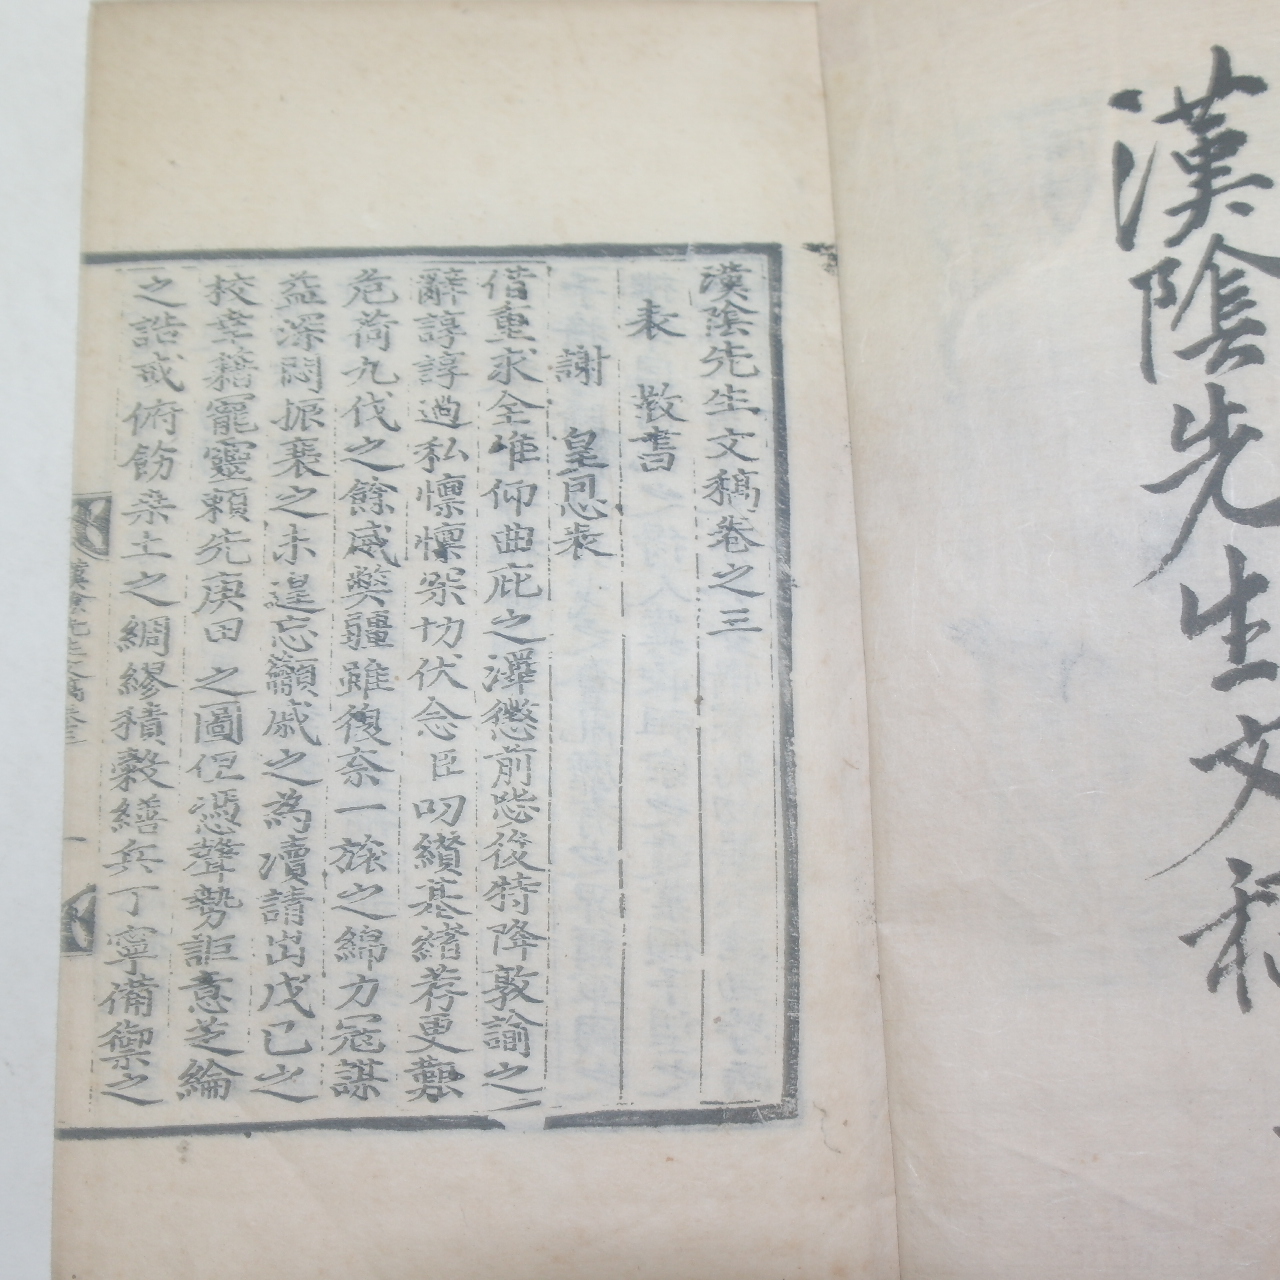 漢陰先生文稿
漢陰先生文稿卷之三
表 敎書
謝 皇恩表
借重求全唯仰曲庇之澤懲前毖後特降敦諭之
辭諄諄過私懍懍深切伏念臣叨纘基緖荐更艱
危荷九伐之餘威獘疆雖復奈一旅之綿力冦謀
益深悶振裘之未遑忘顲戚之為瀆請出戊己之
校幸藉寵靈賴先庚田之圖但憑聲勢詎意芝綸
之誥戒俯飭桑土之綢繆積穀繕兵丁寧備禦之
漢陰先生文稿卷三 一